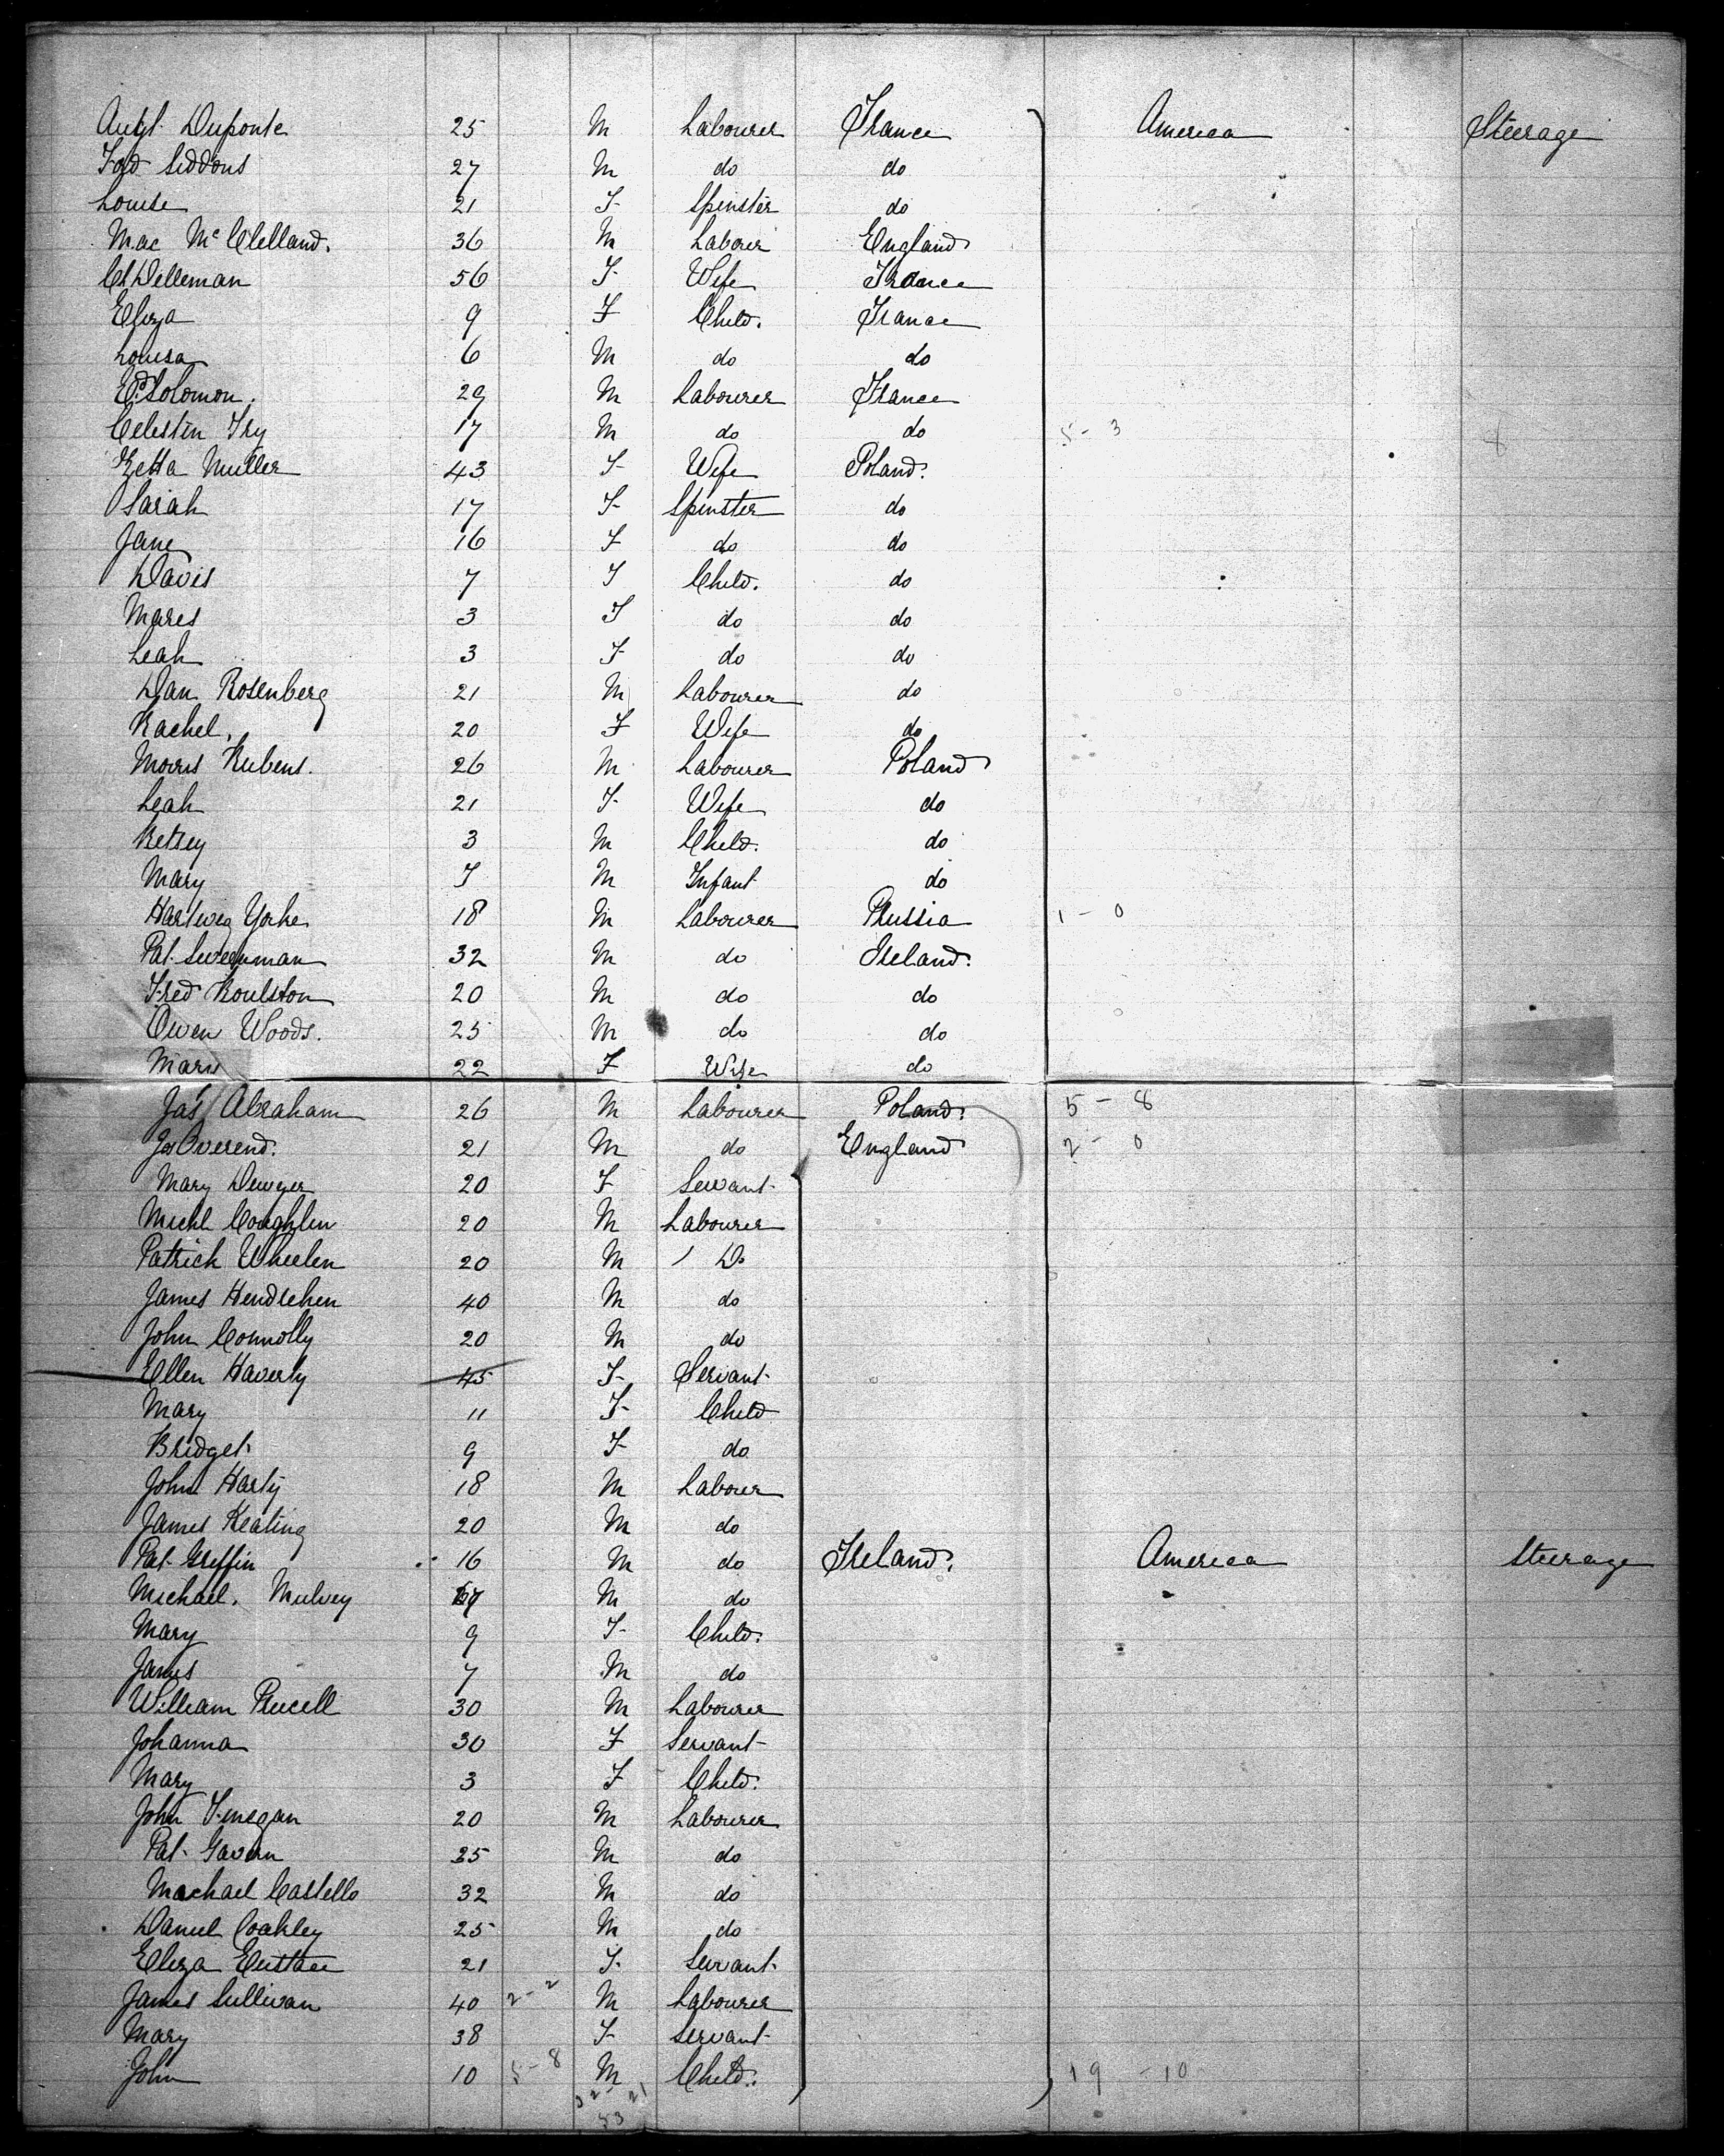 Augt. Duponte 25 M Labourer France America Steerage
Fred Siddons 27 M do do
Louise 21 F Spinster do
Mac McClelland. 36 M Laborer England
Ch Delleman 56 F Wife France
Eliza 9 F Child. France
Louisa 6 M do do
Ed. Solomon. 29 M Labourer France
Celestin Fry 17 M do do 5 - 3 8
Zetta Muller 43 F Wife Poland.
Sarah 17 F Spinster do
Jane 16 F do do
Davis 7 F Child. do
Mares 3 F do do
Leah 3 F do do
Dan Rosenberg 21 M Labourer do
Rachel. 20 F Wife do
Morris Rubens. 26 M Labourer Poland
Leah 21 F Wife do
Betsey 3 M Child. do
Mary I M Infant do
Hartwig Yorke 18 M Labourer Prussia 1 - 0
Pat. Sweenman 32 M do Ireland.
Fred Roulston 20 M do do
Owen Woods. 25 M do do
Mary 22 F Wife do
Jas Abraham 26 M Labourer Poland. 5 - 8
Jos Overend. 21 M do England 2 - 0
Mary Dewyer 20 F Servant
Michl Coughlin 20 M Labourer
Patrick Wheelen 20 M Do
James Hendrehen 40 M do
John Connolly 20 M do
Ellen Haverty 45 F Servant
Mary 11 F Child
Bridget 9 F do
John Harty 18 M Laborer
James Keating 20 M do
Pat Griffin 16 M do Ireland. America Steerage
Michael. Mulvey M do
Mary 9 F Child.
James 7 M do
William Purcell 30 M Labourer
Johanna 30 F Servant
Mary 3 F Child.
John Finegan 20 M Labourer
Pat. Gavan 25 M do
Machael Castello 32 M do
Daniel Coakley 25 M do
Eliza Eustace 21 F Servant
James Sullivan 40 2-2 M Labourer
Mary 38 F Servant
John 10 5-8 M Child. 19 - 10
32 21
53